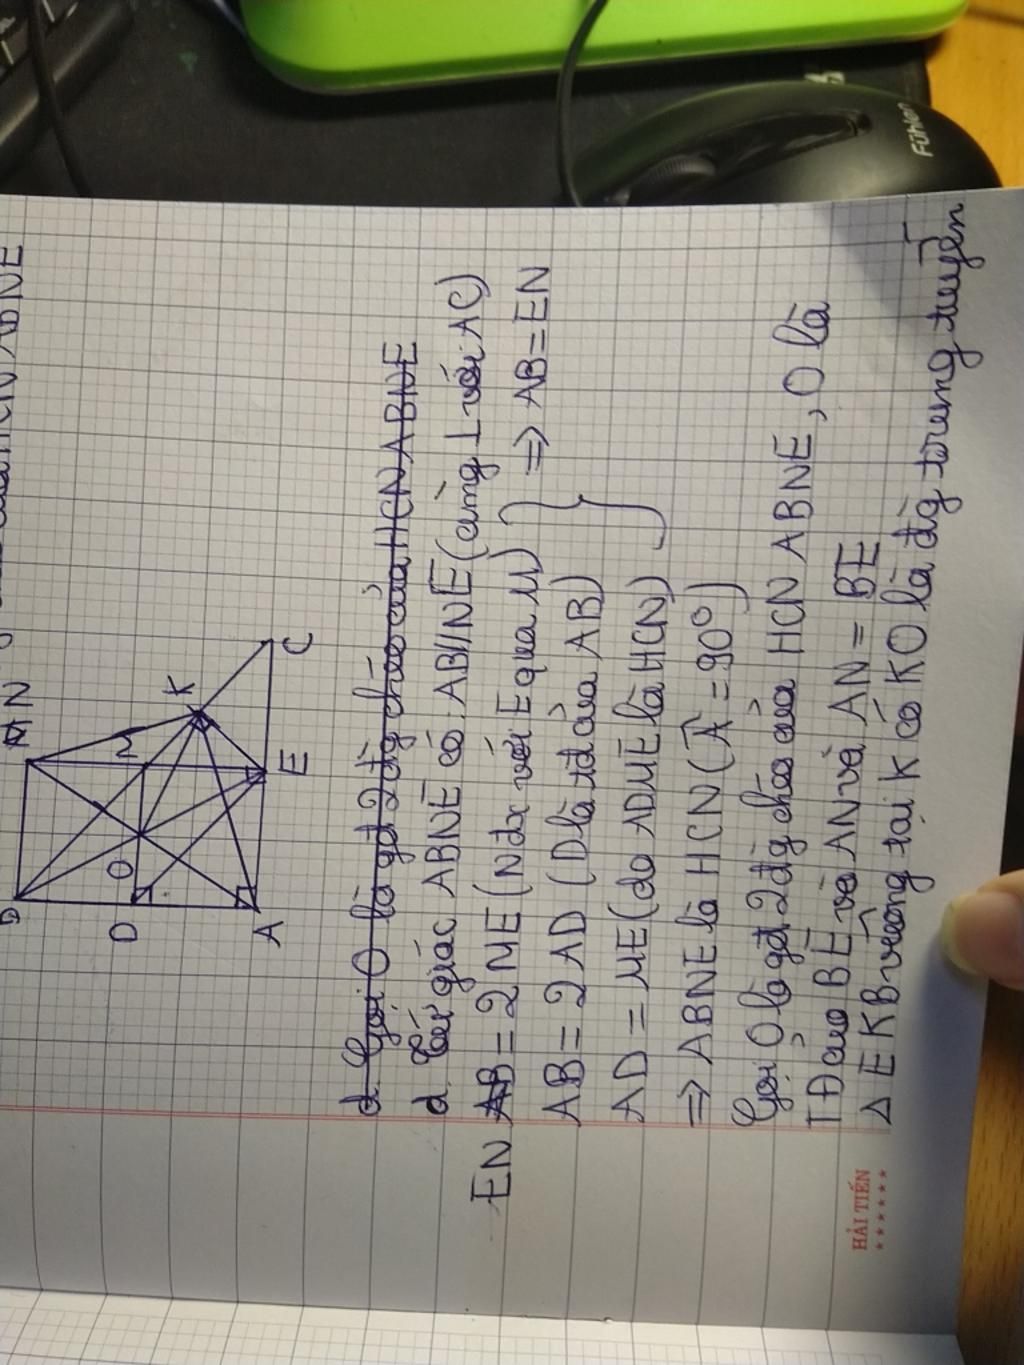 HCN ABNE
B
N
M
K
O
D
A
E
C
d. Gọi O là gđ 2 đg chéo của HCN ABNE
d. Tứ giác ABNE có: AB//NE (cùng ⊥ với AC)
EN AB = 2 ME (N đx với E qua M)
AB = 2 AD (D là tđ của AB)
AD = ME (do ADME là HCN)
} => AB = EN
=> ABNE là HCN (Â = 90°)
Gọi O là gđ 2 đg chéo của HCN ABNE, O là
TĐ của BE và AN và AN = BE
Δ EKB vuông tại K có KO là đg trung tuyến
HẢI TIẾN
Fühlen